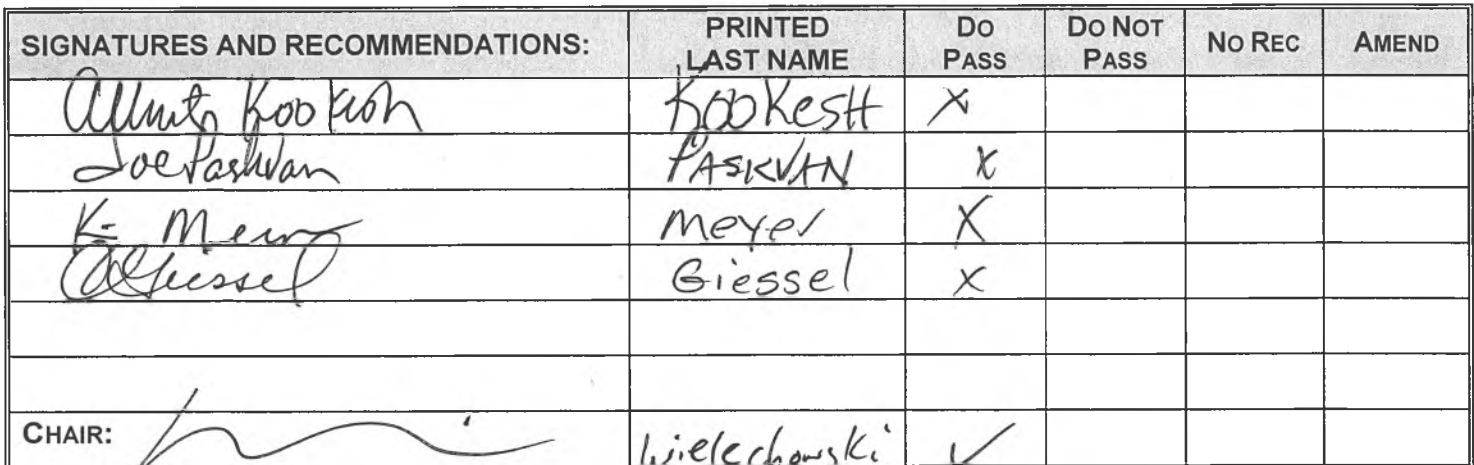 SIGNATURES AND RECOMMENDATIONS: PRINTED LAST NAME DO PASS DO NOT PASS NO REC AMEND
Kookesh KooKesH X
Joe Paskvan PASKVAN X
K- Meyer Meyer X
CGiessel Giessel X
CHAIR: Wielechowski ✓